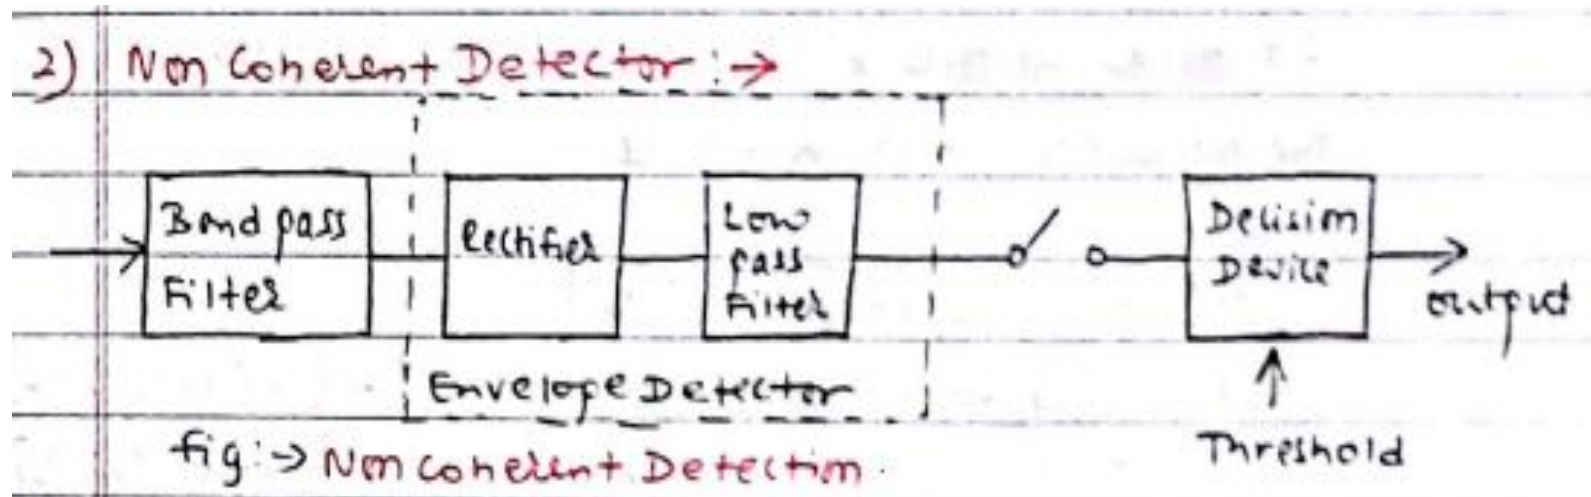 2) Non Coherent Detector :→
Band pass
Filter
Rectifier
Low
pass
Filter
Decision
Device
output
Envelope Detector
Threshold
fig :→ Non Coherent Detection.